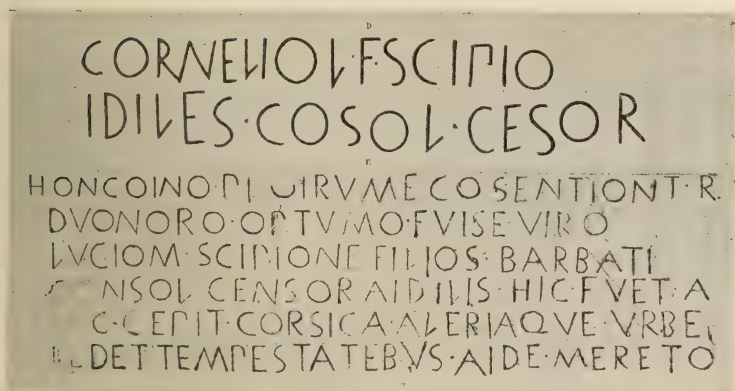 D
CORNELIO L·F·SCIPIO
IDILES·COSOL·CESOR
E
HONCOINO·PLOIRVME COSENTIONT·R
DVONORO·OPTVMO·FVISE·VIRO
LVCIOM·SCIPIONE FILIOS·BARBATI
CONSOL CENSOR AIDILIS·HIC·FVET·A
C·CEPIT·CORSICA·ALERIAQVE·VRBE
DET TEMPESTATEBVS·AIDE·MERETO